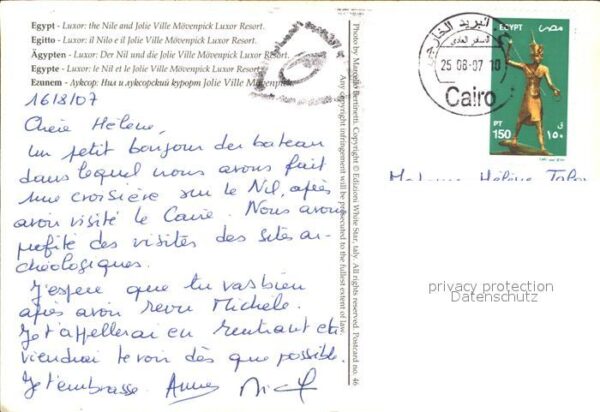 Egypt - Luxor: the Nile and Jolie Ville Mövenpick Luxor Resort.
Egitto - Luxor: il Nilo e il Jolie Ville Mövenpick Luxor Resort.
Ägypten - Luxor: Der Nil und die Jolie Ville Mövenpick Luxor Resort.
Egypte - Luxor: le Nil et le Jolie Ville Mövenpick Luxor Resort.
Египет - Луксор: Нил и луксорский курорт Jolie Ville Mövenpick.
16/8/07
Chère Hélène,
Un petit bonjour du bateau
dans lequel nous avons fait
une croisière sur le Nil, après
avoir visité le Caire. Nous avons
profité des visites des sites ar-
chéologiques.
J'espère que tu vas bien
après avoir revu Michèle.
Je t'appellerai en rentrant et
viendrai te voir dès que possible.
Je t'embrasse.
Photo by Marcello Bertinetti. Copyright © Edizioni White Star, Italy. All rights reserved. Postcard no. 46
Any copyright infringement will be prosecuted to the fullest extent of law.
البريد الخارجى
25 08 07 10
Cairo
EGYPT مصر
PT
150 ١٥٠
Hélène
privacy protection
Datenschutz